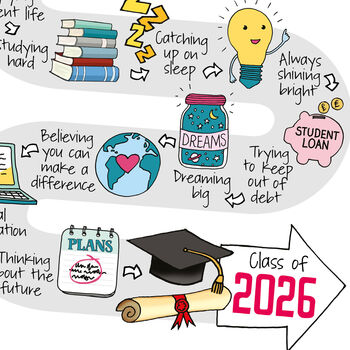 ent life
Studying
hard
Catching
up on
sleep
Always
shining
bright
STUDENT
LOAN
Trying
to keep
out of
debt
DREAMS
Dreaming
big
Believing
you can
make a
difference
al
ation
Thinking
about the
future
PLANS
Class of
2026